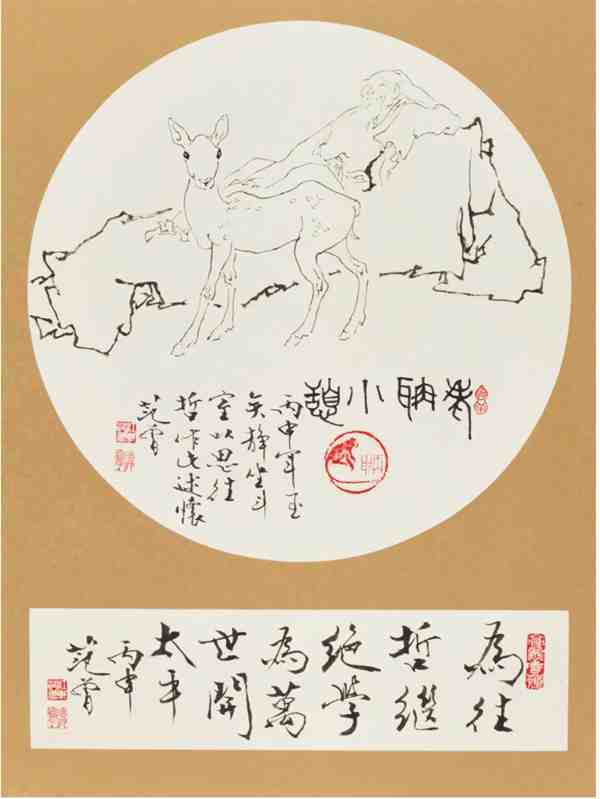 老聃小憩
丙申年至
矣靜坐斗
室以思往
哲作此述懷
范曾
為往
哲繼
絕學
為萬
世開
太平
丙申
范曾